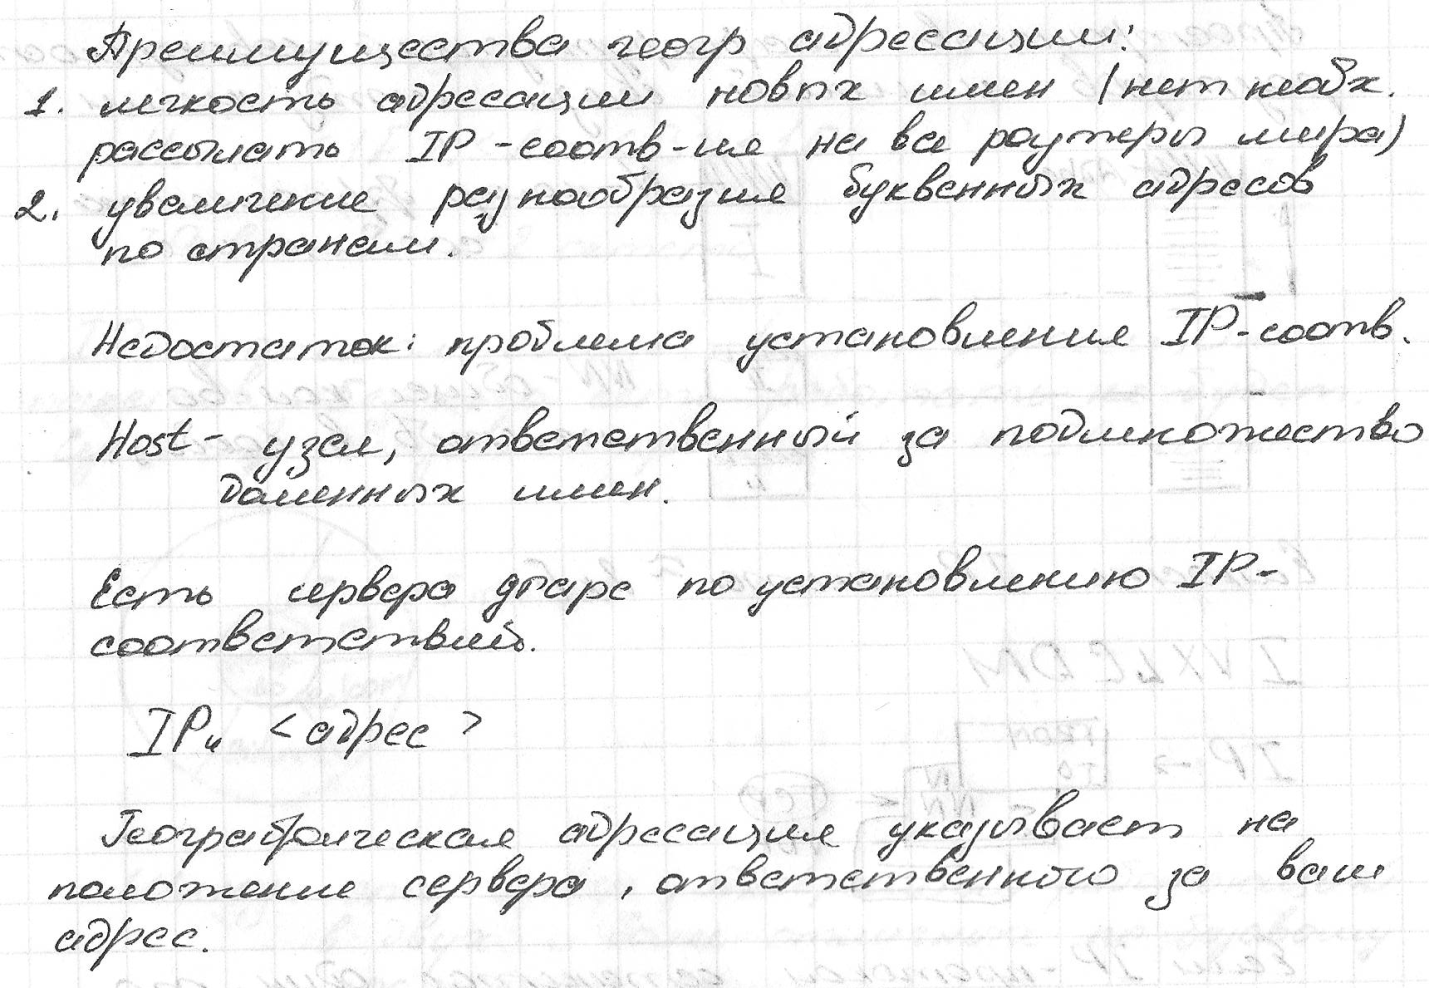 Преимущества геогр адресации:
1. легкость адресации новых имен (нет необх.
рассылать IP-соотв-ия на все роутеры мира)
2. увеличение разнообразия буквенных адресов
по странам.
Недостаток: проблема установления IP-соотв.
Host - узел, ответственный за подмножество
доменных имен.
Есть сервера по установлению IP-
соответствий.
IP₄ <адрес>
Географическая адресация указывает на
положение сервера, ответственного за ваш
адрес.